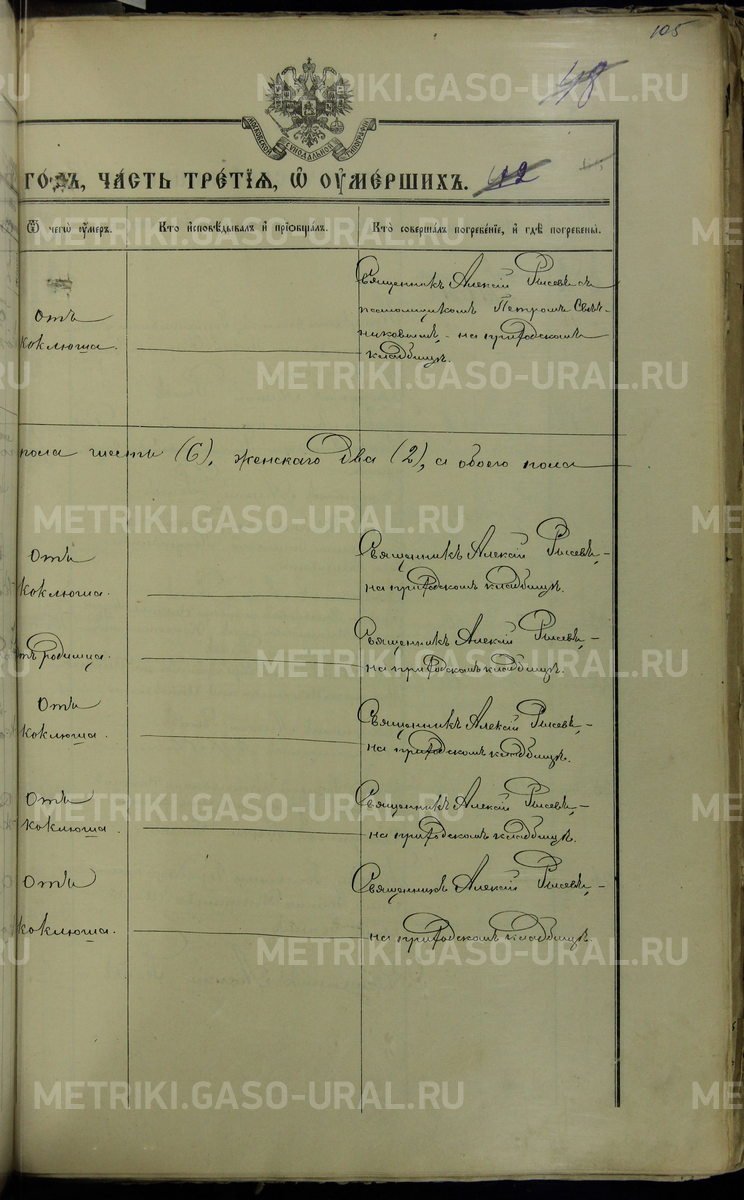 105
48
МОСКОВСКОЙ СѴНОДАЛЬНОЙ ТИПОГРАФІИ
ГОДЪ, ЧАСТЬ ТРЕТІЯ, Ѿ ОУМЕРШИХЪ. 42
Ѿ чегѡ оумеръ.
Кто исповѣдывалъ и пріобщалъ.
Кто совершалъ погребеніе, и гдѣ погребены.
Отъ
коклюша.
Священникъ Алексій съ
псаломщикомъ Петромъ
на приходскомъ
кладбищѣ.
пола шесть (6), женскаго два (2), а обоего пола
Отъ
коклюша.
Священникъ Алексій
на приходскомъ кладбищѣ.
отъ родимца.
Священникъ Алексій
на приходскомъ кладбищѣ.
Отъ
коклюша.
Священникъ Алексій
на приходскомъ кладбищѣ.
Отъ
коклюша.
Священникъ Алексій
на приходскомъ кладбищѣ.
Отъ
коклюша.
Священникъ Алексій
на приходскомъ кладбищѣ.
METRIKI.GASO-URAL.RU